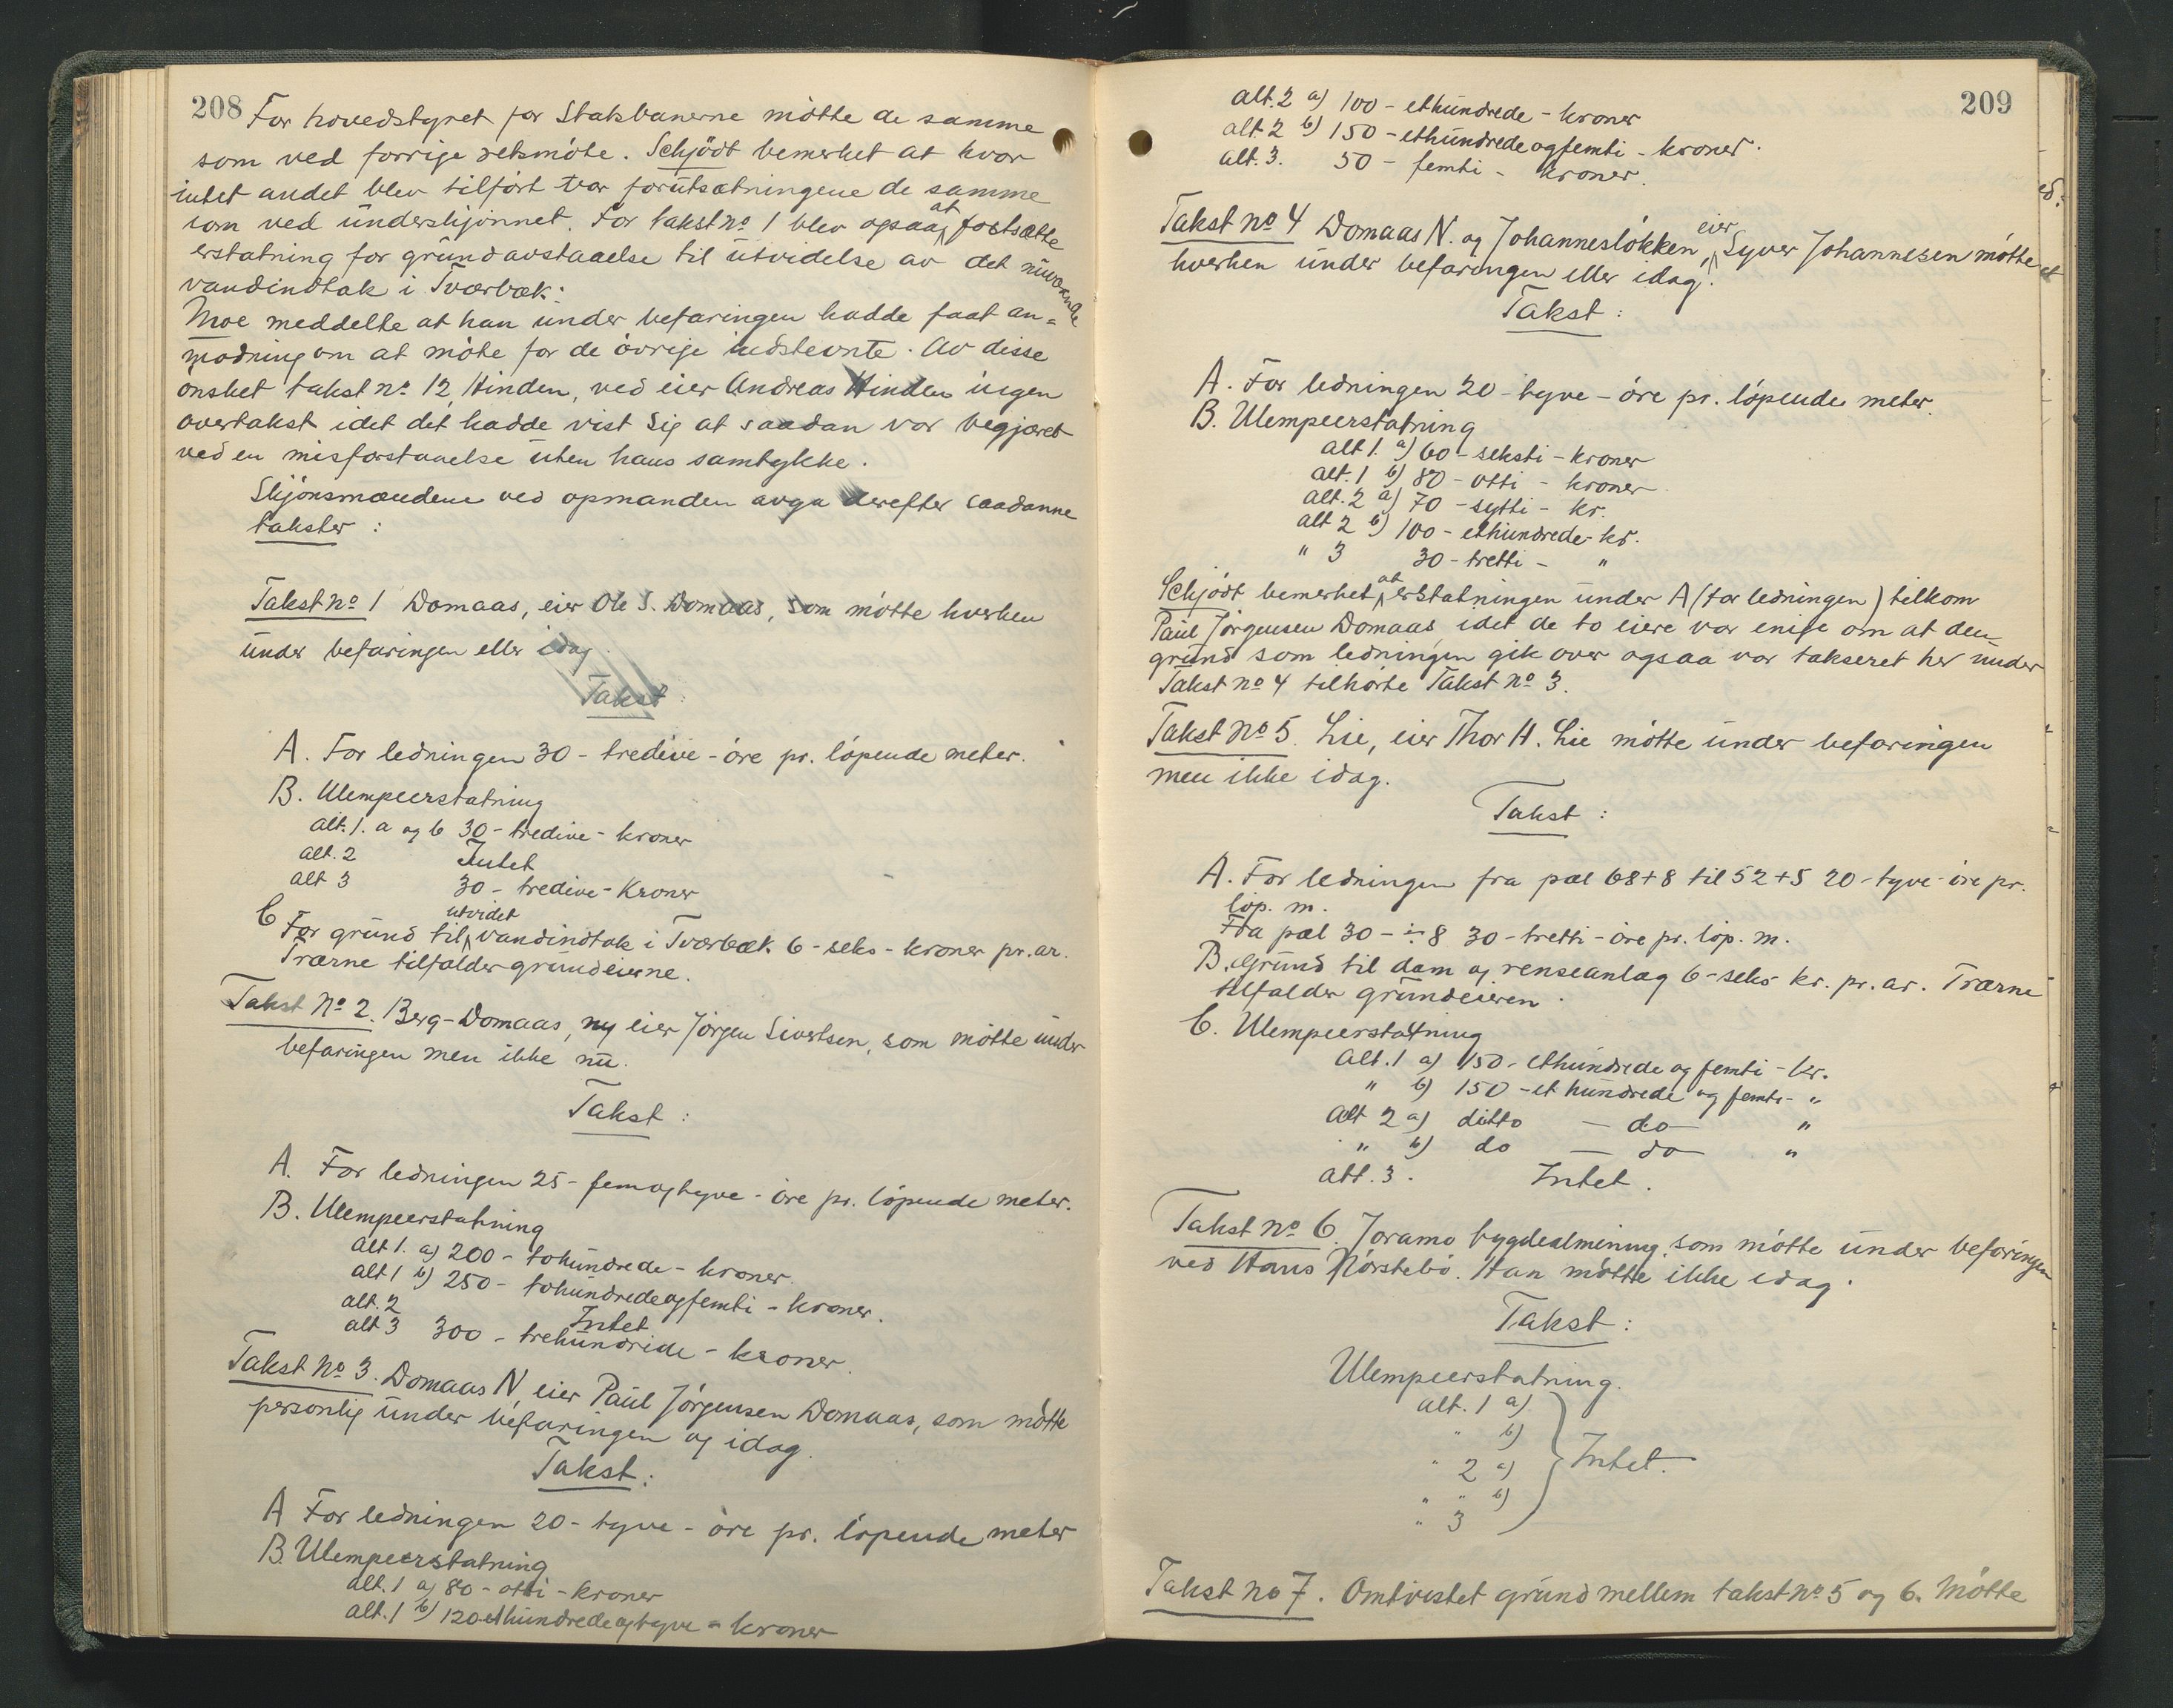 208
For hovedstyret for Statsbanerne møtte de samme
som ved forrige retsmøte. Schjødt bemerket at hvor
intet andet blev tilført var forutsætningene de samme
som ved underskjønnet. For takst no 1 blev ogsaa at fastsætte
erstatning for grundavstaaelse til utvidelse av det nuværende
vandindtak i Tværbæk.
Moe meddelte at han under befaringen hadde faat an=
modning om at møte for de øvrige indstevnte. Av disse
ønsket takst no 12, Hinden, ved eier Andreas Hinden ingen
overtakst idet det hadde vist sig at saadan var begjæret
ved en misforstaaelse uten hans samtykke.
Skjønsmændene ved opmanden avga derefter saadanne
takster:
Takst no 1 Domaas, eier Ole S. Domaas, som møtte hverken
under befaringen eller idag.
Takst:
A. For ledningen 30 - tredive - øre pr. løpende meter.
B. Ulempeerstatning
Alt. 1. a og b 30 - tredive - kroner
alt. 2 Intet
alt 3 30 - tredive - Kroner
C For grund til utvidet vandindtak i Tværbæk 6 - seks - kroner pr. ar.
Trærne tilfalder grundeierne.
Takst No 2. Berg-Domaas, ny eier Jørgen Sivertsen, som møtte under
befaringen men ikke nu.
Takst:
A. For ledningen 25 - femogtyve - øre pr. løpende meter.
B. Ulempeerstatning
Alt 1. a) 200 - tohundrede - kroner.
alt 1 b) 250 - tohundredeogfemti - kroner.
alt. 2 Intet
alt 3 300 - trehundrede - kroner.
Takst No 3. Domaas N, eier Paul Jørgensen Domaas, som møtte
personlig under befaringen og idag.
Takst:
A For ledningen 20 - tyve - øre pr. løpende meter
B. Ulempeerstatning
alt. 1 a) 80 - otti - Kroner
alt. 1 b) 120 - ethundredeogtyve - kroner
209
alt. 2 a) 100 - ethundrede - kroner
alt. 2 b) 150 - ethundredeogfemti - kroner.
alt. 3. 50 - femti - kroner.
Takst no 4 Domaas N. og Johannesløkken, eier Syver Johannesen møtte
hverken under befaringen eller idag.
Takst:
A. For ledningen 20 - tyve - øre pr. løpende meter.
B. Ulempeerstatning
alt 1. a) 60 - seksti - kroner
alt. 1 b) 80 - otti - kroner
alt. 2 a) 70 - sytti - kr.
alt 2 b) 100 - ethundrede - kr.
" 3 30 - tretti - "
Schjødt bemerket at erstatningen under A (for ledningen) tilkom
Paul Jørgensen Domaas, idet de to eiere var enige om at den
grund som ledningen gik over ogsaa var takseret her under
Takst no 4 tilhørte Takst no 3.
Takst No 5. Lie, eier Thor H. Lie møtte under befaringen
men ikke idag.
Takst:
A. For ledningen fra pæl 68+8 til 52+5 20 - tyve - øre pr.
løp. m.
Fra pæl 30 - ÷ 8 30 - tretti - øre pr. løp. m.
B. Grund til dam og renseanlæg 6 - seks kr. pr. ar. Trærne
tilfalder grundeieren.
C. Ulempeerstatning
Alt. 1 a) 150 - ethundrede og femti - kr.
" b) 150 - et hundrede og femti - "
Alt 2 a) ditto — do — "
" b) do — do "
alt. 3. Intet.
Takst no 6. Joramo bygdealmenning, som møtte under befaringen
ved Hans Nørstebø. Han møtte ikke idag.
Takst:
Ulempeerstatning.
alt. 1 a)
" b)
" 2 a) Intet.
" " b)
" 3
Takst no 7. Omtvistet grund mellem takst no 5 og 6. Møtte